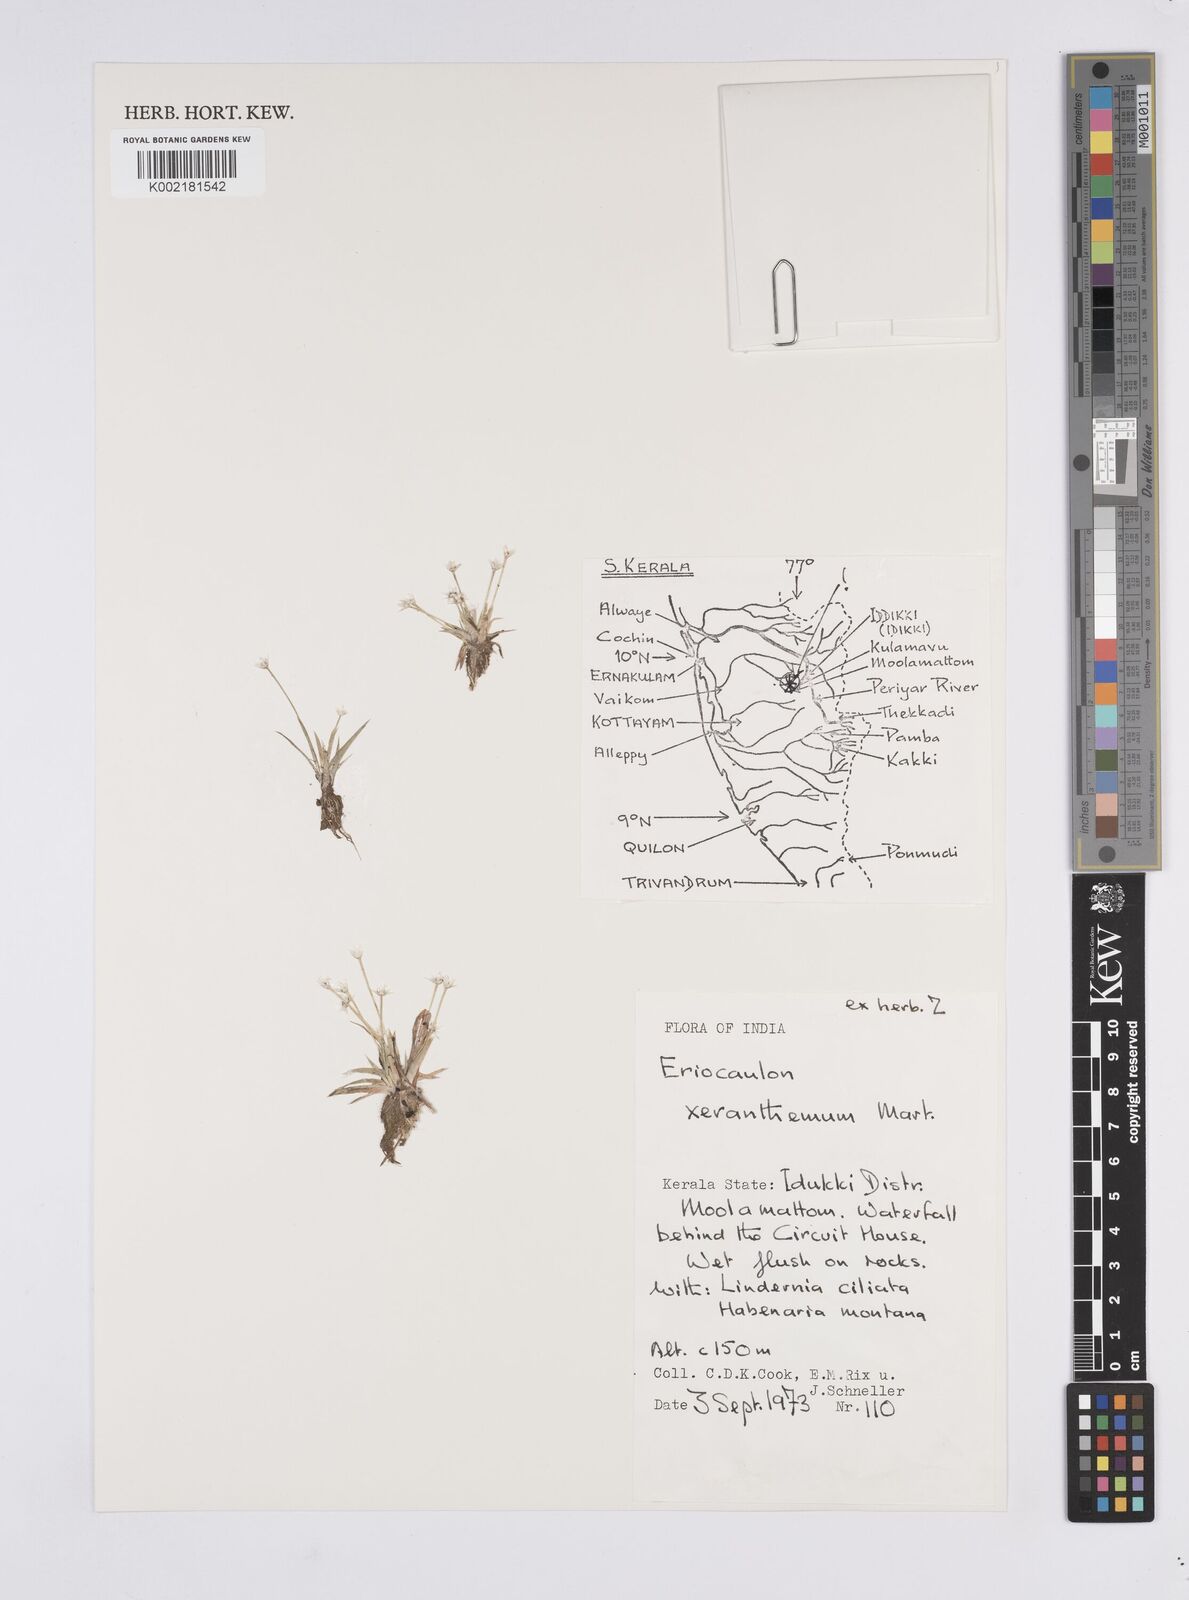 HERB. HORT. KEW.
ROYAL BOTANIC GARDENS KEW
K002181542
S. KERALA
77°
Alwaye
Cochin
10°N
ERNAKULAM
Vaikom
KOTTAYAM
Alleppy
9°N
QUILON
TRIVANDRUM
IDDIKKI
(IDIKKI)
Kulamavu
Moolamattom
Periyar River
Thekkadi
Pamba
Kakki
Ponmudi
ex herb. Z
FLORA OF INDIA
Eriocaulon
xeranthemum Mart.
Kerala State: Idukki Distr.
Moolamattom. Waterfall
behind the Circuit House.
Wet flush on rocks.
With: Lindernia ciliata
Habenaria montana
Alt. c 150 m
Coll. C.D.K.Cook, E.M.Rix u.
J.Schneller
Date 3 Sept. 1973 Nr. 110
centimetres
M001011
Don Williams
Density
inches
Kew
Royal Botanic Gardens
copyright reserved
0 1 2 3 4 5 6 7 8 9 10
cm